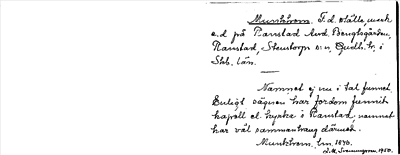 Munkhrom. F.d. ställe, med
e.d på Ranstad Lud. Bengtsgården,
Ranstad, Stenstorp s:n, Gudh. hr. i
Skb. län.
Namnet ej nu i tal funnet.
Enligt sägnen har fordom funnits
kapell el. kyrka i Ranstad, namnet
har väl sammanhang därmed.
Munkhrom, Lm. 1870.
1950.